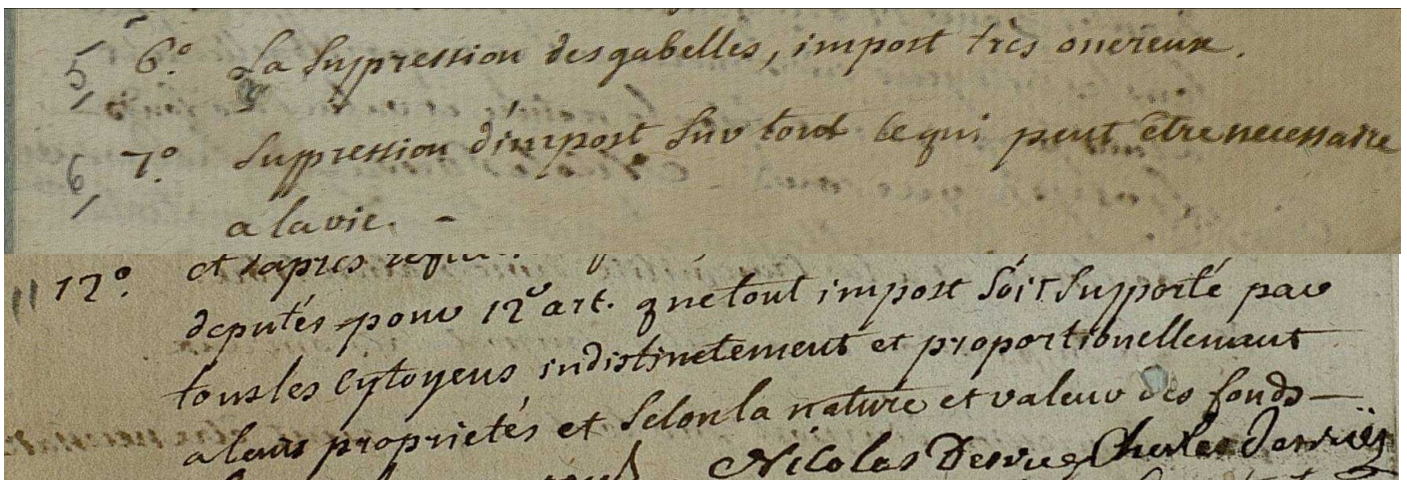 5 6.° La Suppression des gabelles, impost très onereux.
6 7.° Suppression d'impost sur tout ce qui peut être necessaire
a la vie. -
11 12.° et d'apres
deputés pour 12e art. que tout impost soit Supporté par
tous les Cytoyens indistinctement et proportionellement
a leurs proprietés et Selon la nature et valeur des fonds —
Nicolas Charles